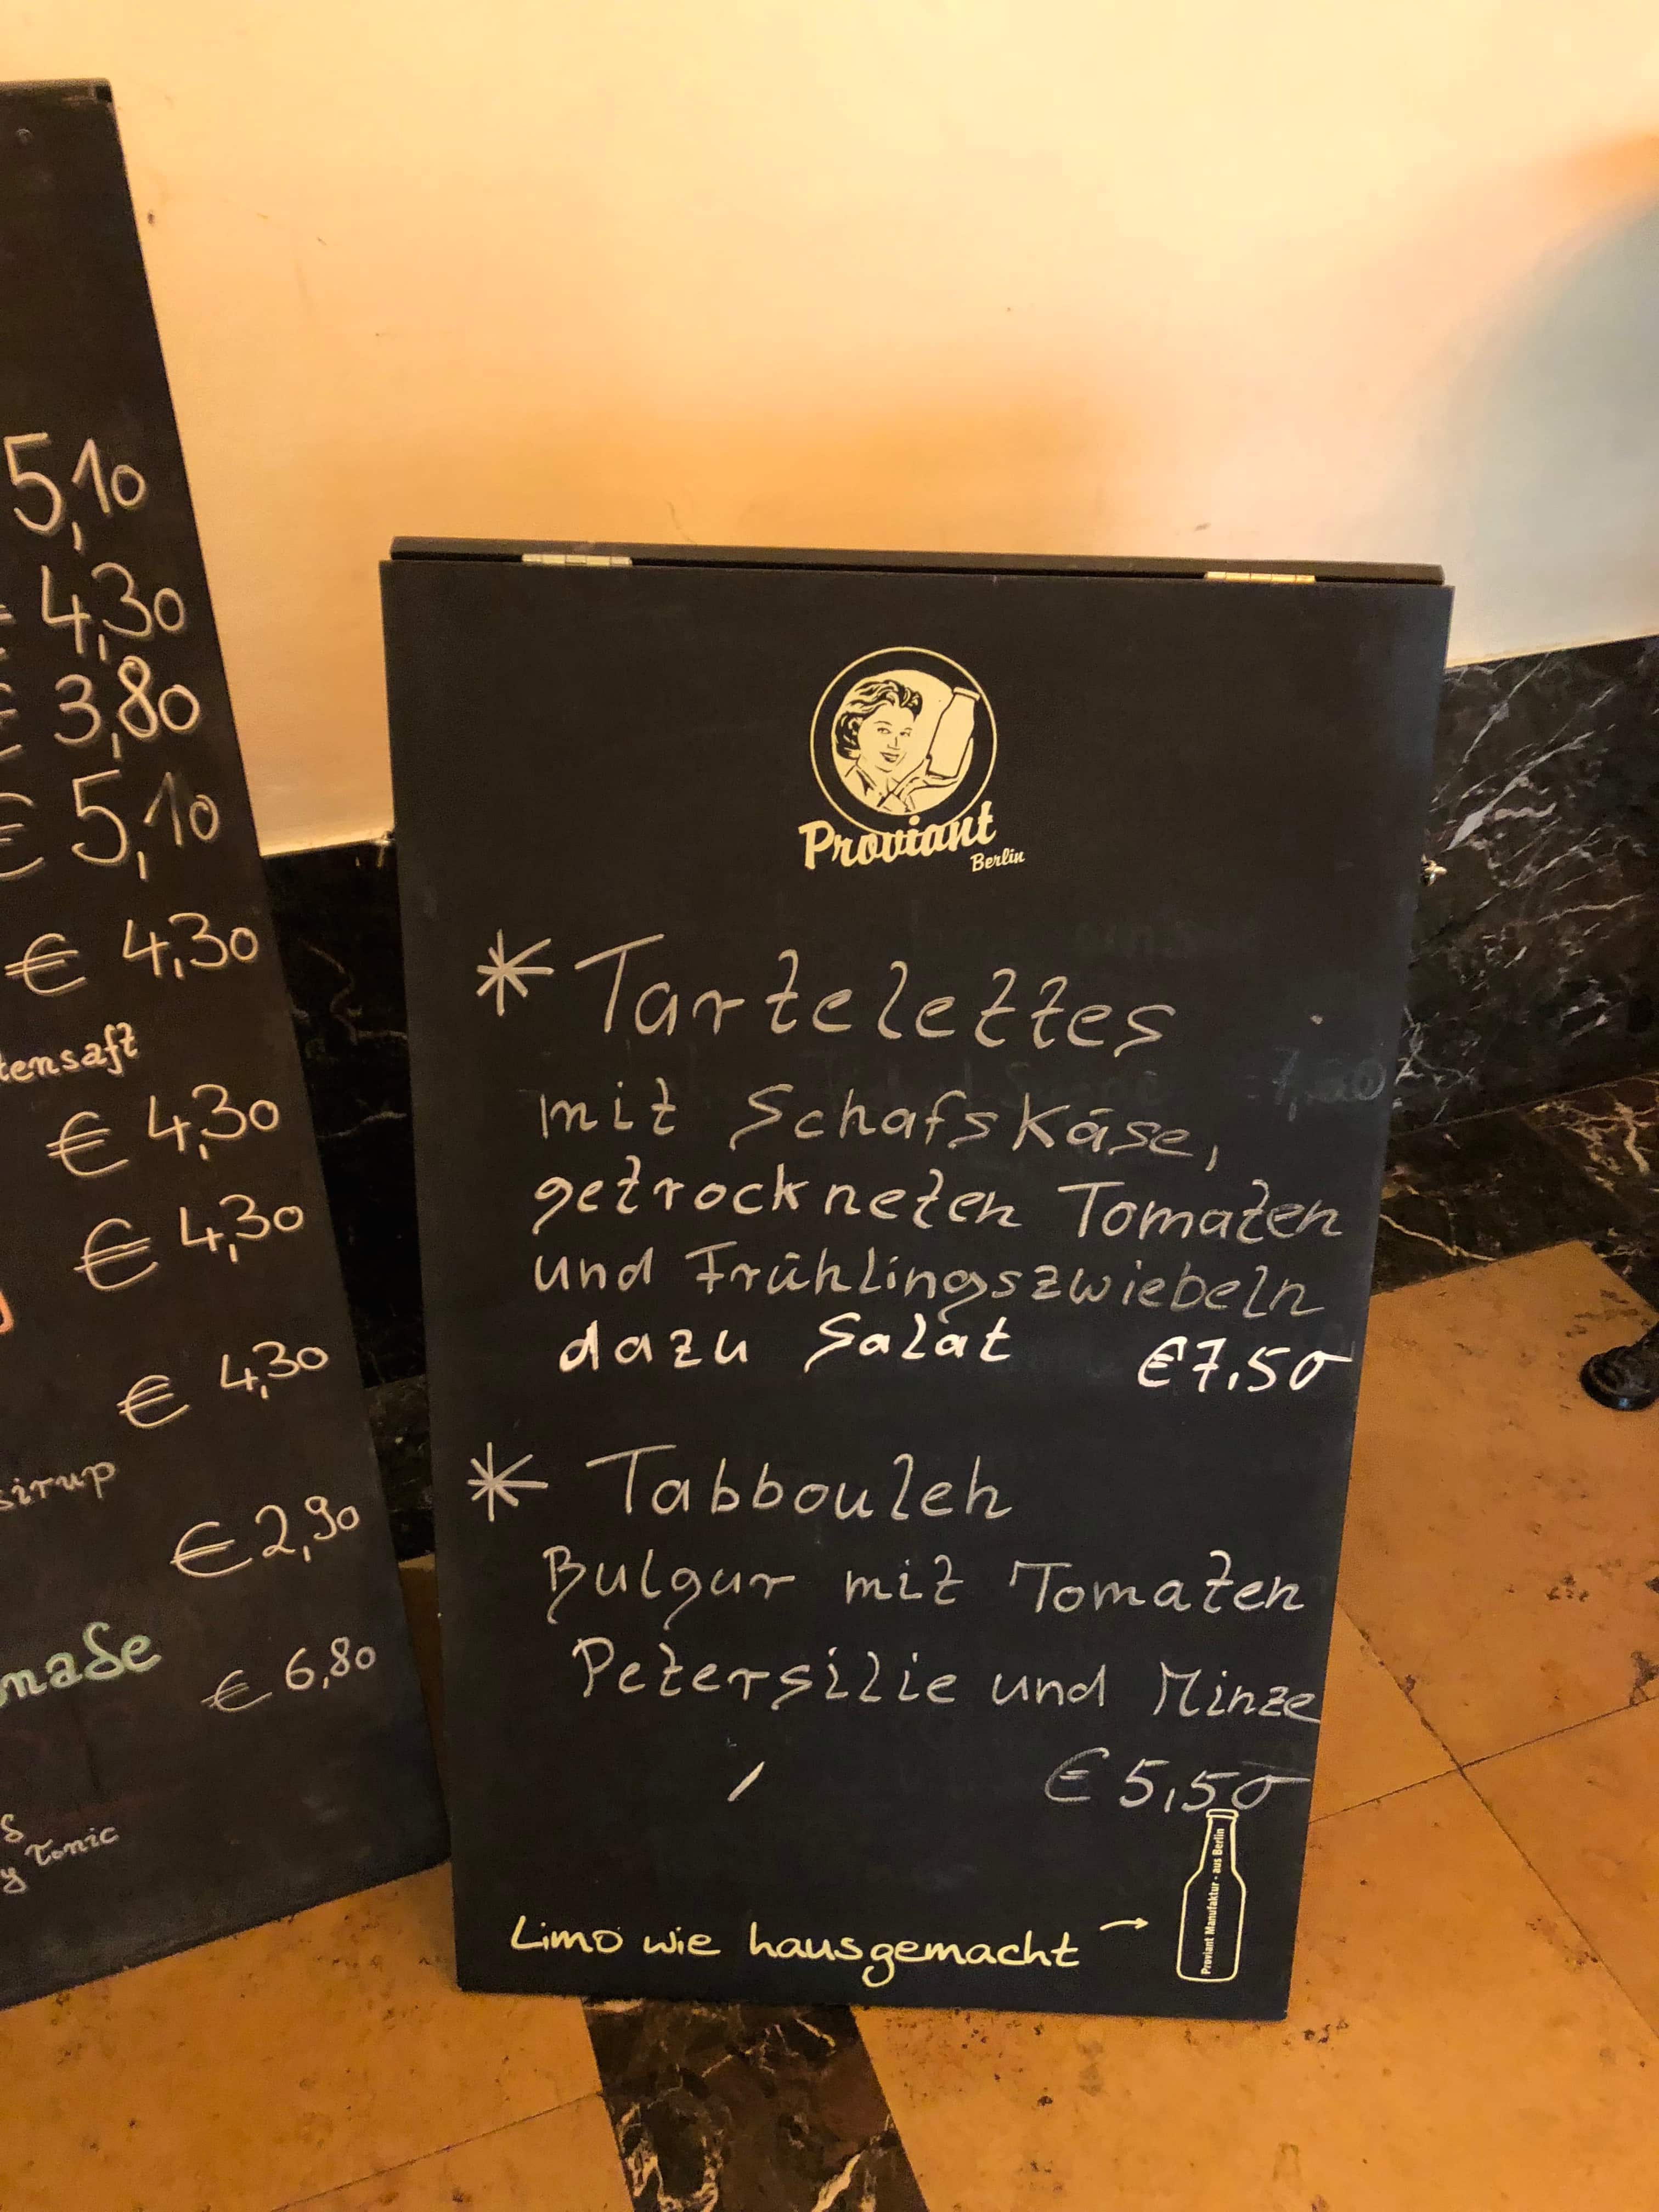 5,10
4,30
€ 3,80
€ 5,10
€ 4,30
tensaft
€ 4,30
€ 4,30
€ 4,30
sirup
€ 2,90
made
€ 6,80
Tonic
Proviant
Berlin
* Tartelettes
mit Schafskäse,
getrockneten Tomaten
und Frühlingszwiebeln
dazu Salat €7,50
* Tabbouleh
Bulgur mit Tomaten
Petersilie und Minze
€ 5,50
Limo wie hausgemacht →
Proviant Manufaktur • aus Berlin